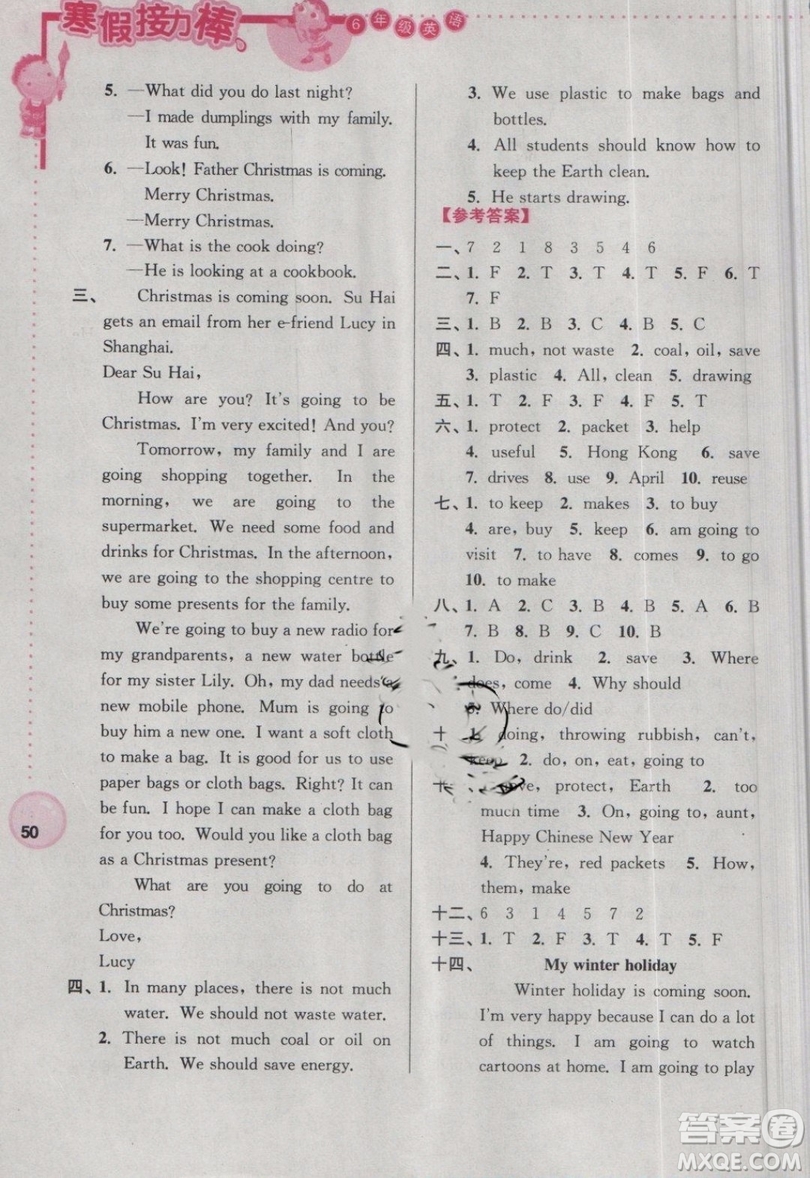 寒假接力棒
6年级英语
5. —What did you do last night?
—I made dumplings with my family.
It was fun.
6. —Look! Father Christmas is coming.
Merry Christmas.
—Merry Christmas.
7. —What is the cook doing?
—He is looking at a cookbook.
三、 Christmas is coming soon. Su Hai
gets an email from her e-friend Lucy in
Shanghai.
Dear Su Hai,
How are you? It's going to be
Christmas. I'm very excited! And you?
Tomorrow, my family and I are
going shopping together. In the
morning, we are going to the
supermarket. We need some food and
drinks for Christmas. In the afternoon,
we are going to the shopping centre to
buy some presents for the family.
We're going to buy a new radio for
my grandparents, a new water bottle
for my sister Lily. Oh, my dad needs a
new mobile phone. Mum is going to
buy him a new one. I want a soft cloth
to make a bag. It is good for us to use
paper bags or cloth bags. Right? It can
be fun. I hope I can make a cloth bag
for you too. Would you like a cloth bag
as a Christmas present?
What are you going to do at
Christmas?
Love,
Lucy
四、1. In many places, there is not much
water. We should not waste water.
2. There is not much coal or oil on
Earth. We should save energy.
50
3. We use plastic to make bags and
bottles.
4. All students should know how to
keep the Earth clean.
5. He starts drawing.
【参考答案】
一、7 2 1 8 3 5 4 6
二、1. F 2. T 3. T 4. T 5. F 6. T
7. F
三、1. B 2. B 3. C 4. B 5. C
四、1. much, not waste 2. coal, oil, save
3. plastic 4. All, clean 5. drawing
五、1. T 2. F 3. F 4. F 5. T
六、1. protect 2. packet 3. help
4. useful 5. Hong Kong 6. save
7. drives 8. use 9. April 10. reuse
七、1. to keep 2. makes 3. to buy
4. are, buy 5. keep 6. am going to
visit 7. to have 8. comes 9. to go
10. to make
八、1. A 2. C 3. B 4. B 5. A 6. B
7. B 8. B 9. C 10. B
九、1. Do, drink 2. save 3. Where
does, come 4. Why should
5. Where do/did
十、 doing, throwing rubbish, can't,
keep 2. do, on, eat, going to
protect, Earth 2. too
much time 3. On, going to, aunt,
Happy Chinese New Year
4. They're, red packets 5. How,
them, make
十二、6 3 1 4 5 7 2
十三、1. T 2. F 3. T 4. T 5. F
十四、 My winter holiday
Winter holiday is coming soon.
I'm very happy because I can do a lot
of things. I am going to watch
cartoons at home. I am going to play
答案圈
MXQE.COM